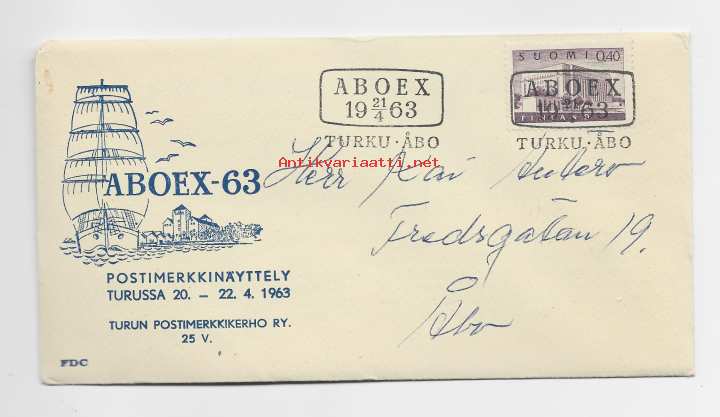 SUOMI 0,40
ABOEX
19 21/4 63
TURKU · ÅBO
ABOEX
19 21/4 63
FINLAND
TURKU · ÅBO
Antikvariaatti.net
ABOEX-63
Herr Kai
Fredsgatan 19.
Åbo
POSTIMERKKINÄYTTELY
TURUSSA 20. – 22. 4. 1963
TURUN POSTIMERKKIKERHO RY.
25 V.
FDC